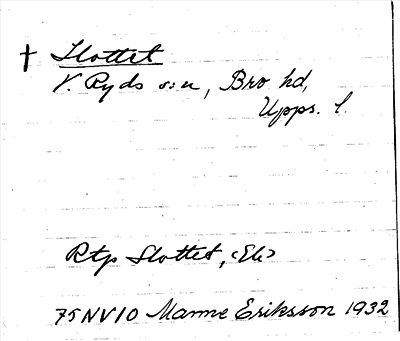 † Slottet
V. Ryds s:n, Bro hd,
Upps. l.
Rtp Slottet, <Ek>
75NV10 Manne Eriksson 1932